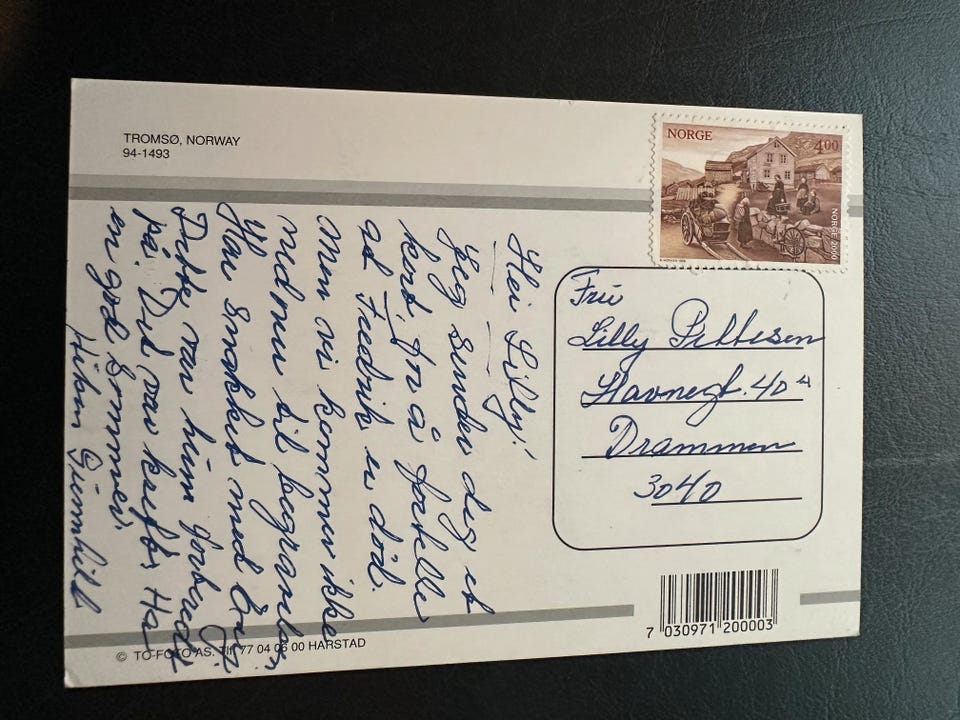 TROMSØ, NORWAY
94-1493
NORGE
4.00
NORGE 2000
Hei Lilly!
Jeg sender deg et
kort, for å fortelle
at Fredrik er død.
Men vi kommer ikke
nedover til begravelsen,
Har snakket med
Dette var hun forberedt
på. Det var kreft. Ha
en god sommer.
Hilsen Gunnhild
Fru
Lilly Pettesen
Havnegt. 40 A
Drammen
3040
7 030971 200003
© TO-FOTO AS. Tlf. 77 04 06 00 HARSTAD